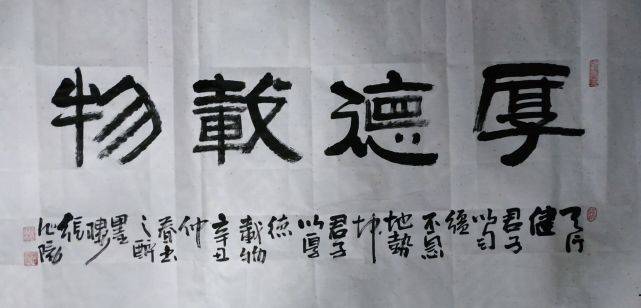 厚德載物
天行
健
君子
以自
彊
不息
地勢
坤
君子
以厚
德
載物
辛丑
仲
春書
墨
張